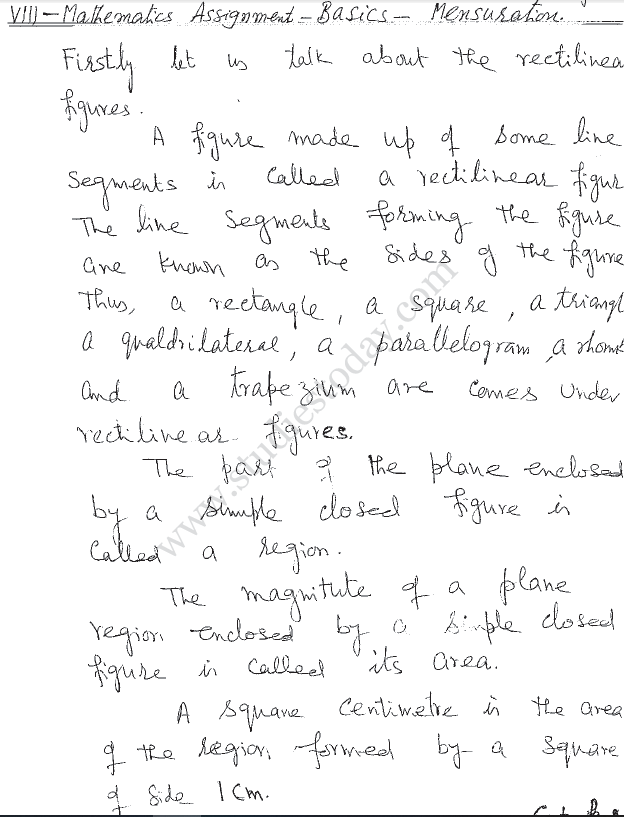 VIII - Mathematics Assignment - Basics - Mensuration.
Firstly let us talk about the rectilinea
figures.
A figure made up of some line
segments is called a rectilinear figur
The line segments forming the figure
are known as the sides of the figure
Thus, a rectangle, a square, a triangl
a qualdrilateral, a parallelogram, a rhomb
and a trapezium are comes under
rectilinear figures.
The part of the plane enclosed
by a simple closed figure is
called a region.
The magnitute of a plane
region enclosed by a simple closed
figure is called its area.
A square centimetre is the area
of the region formed by a square
of side 1 cm.
www.studiestoday.com